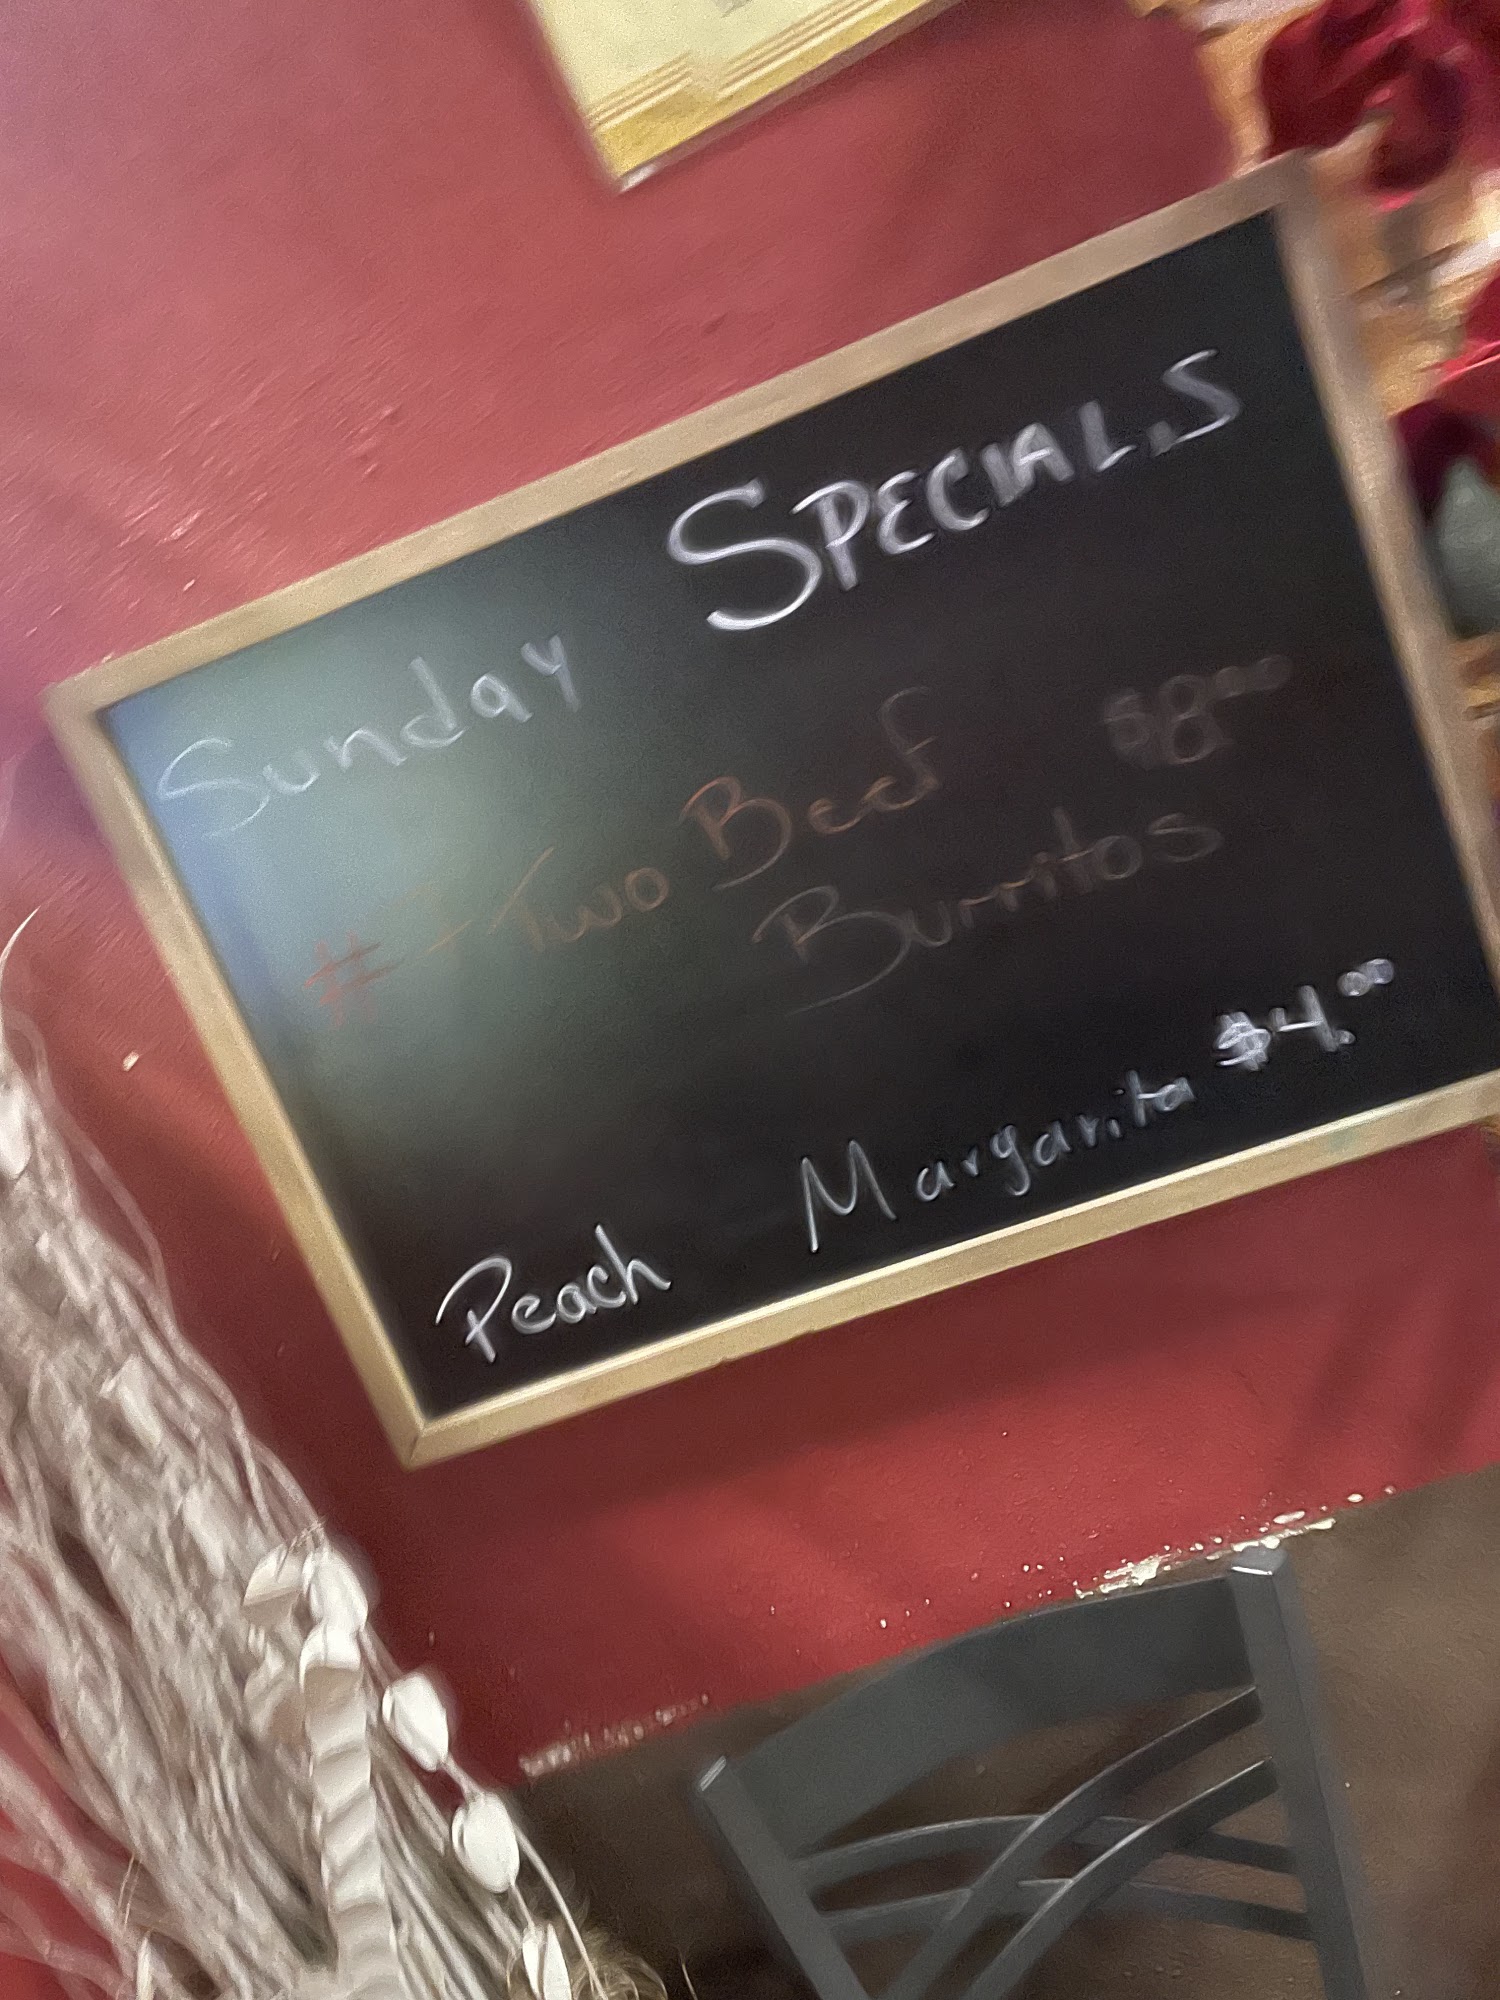 Sunday SPECIALS
#7 Two Beef $8.00
Burritos
Peach Margarita $4.00